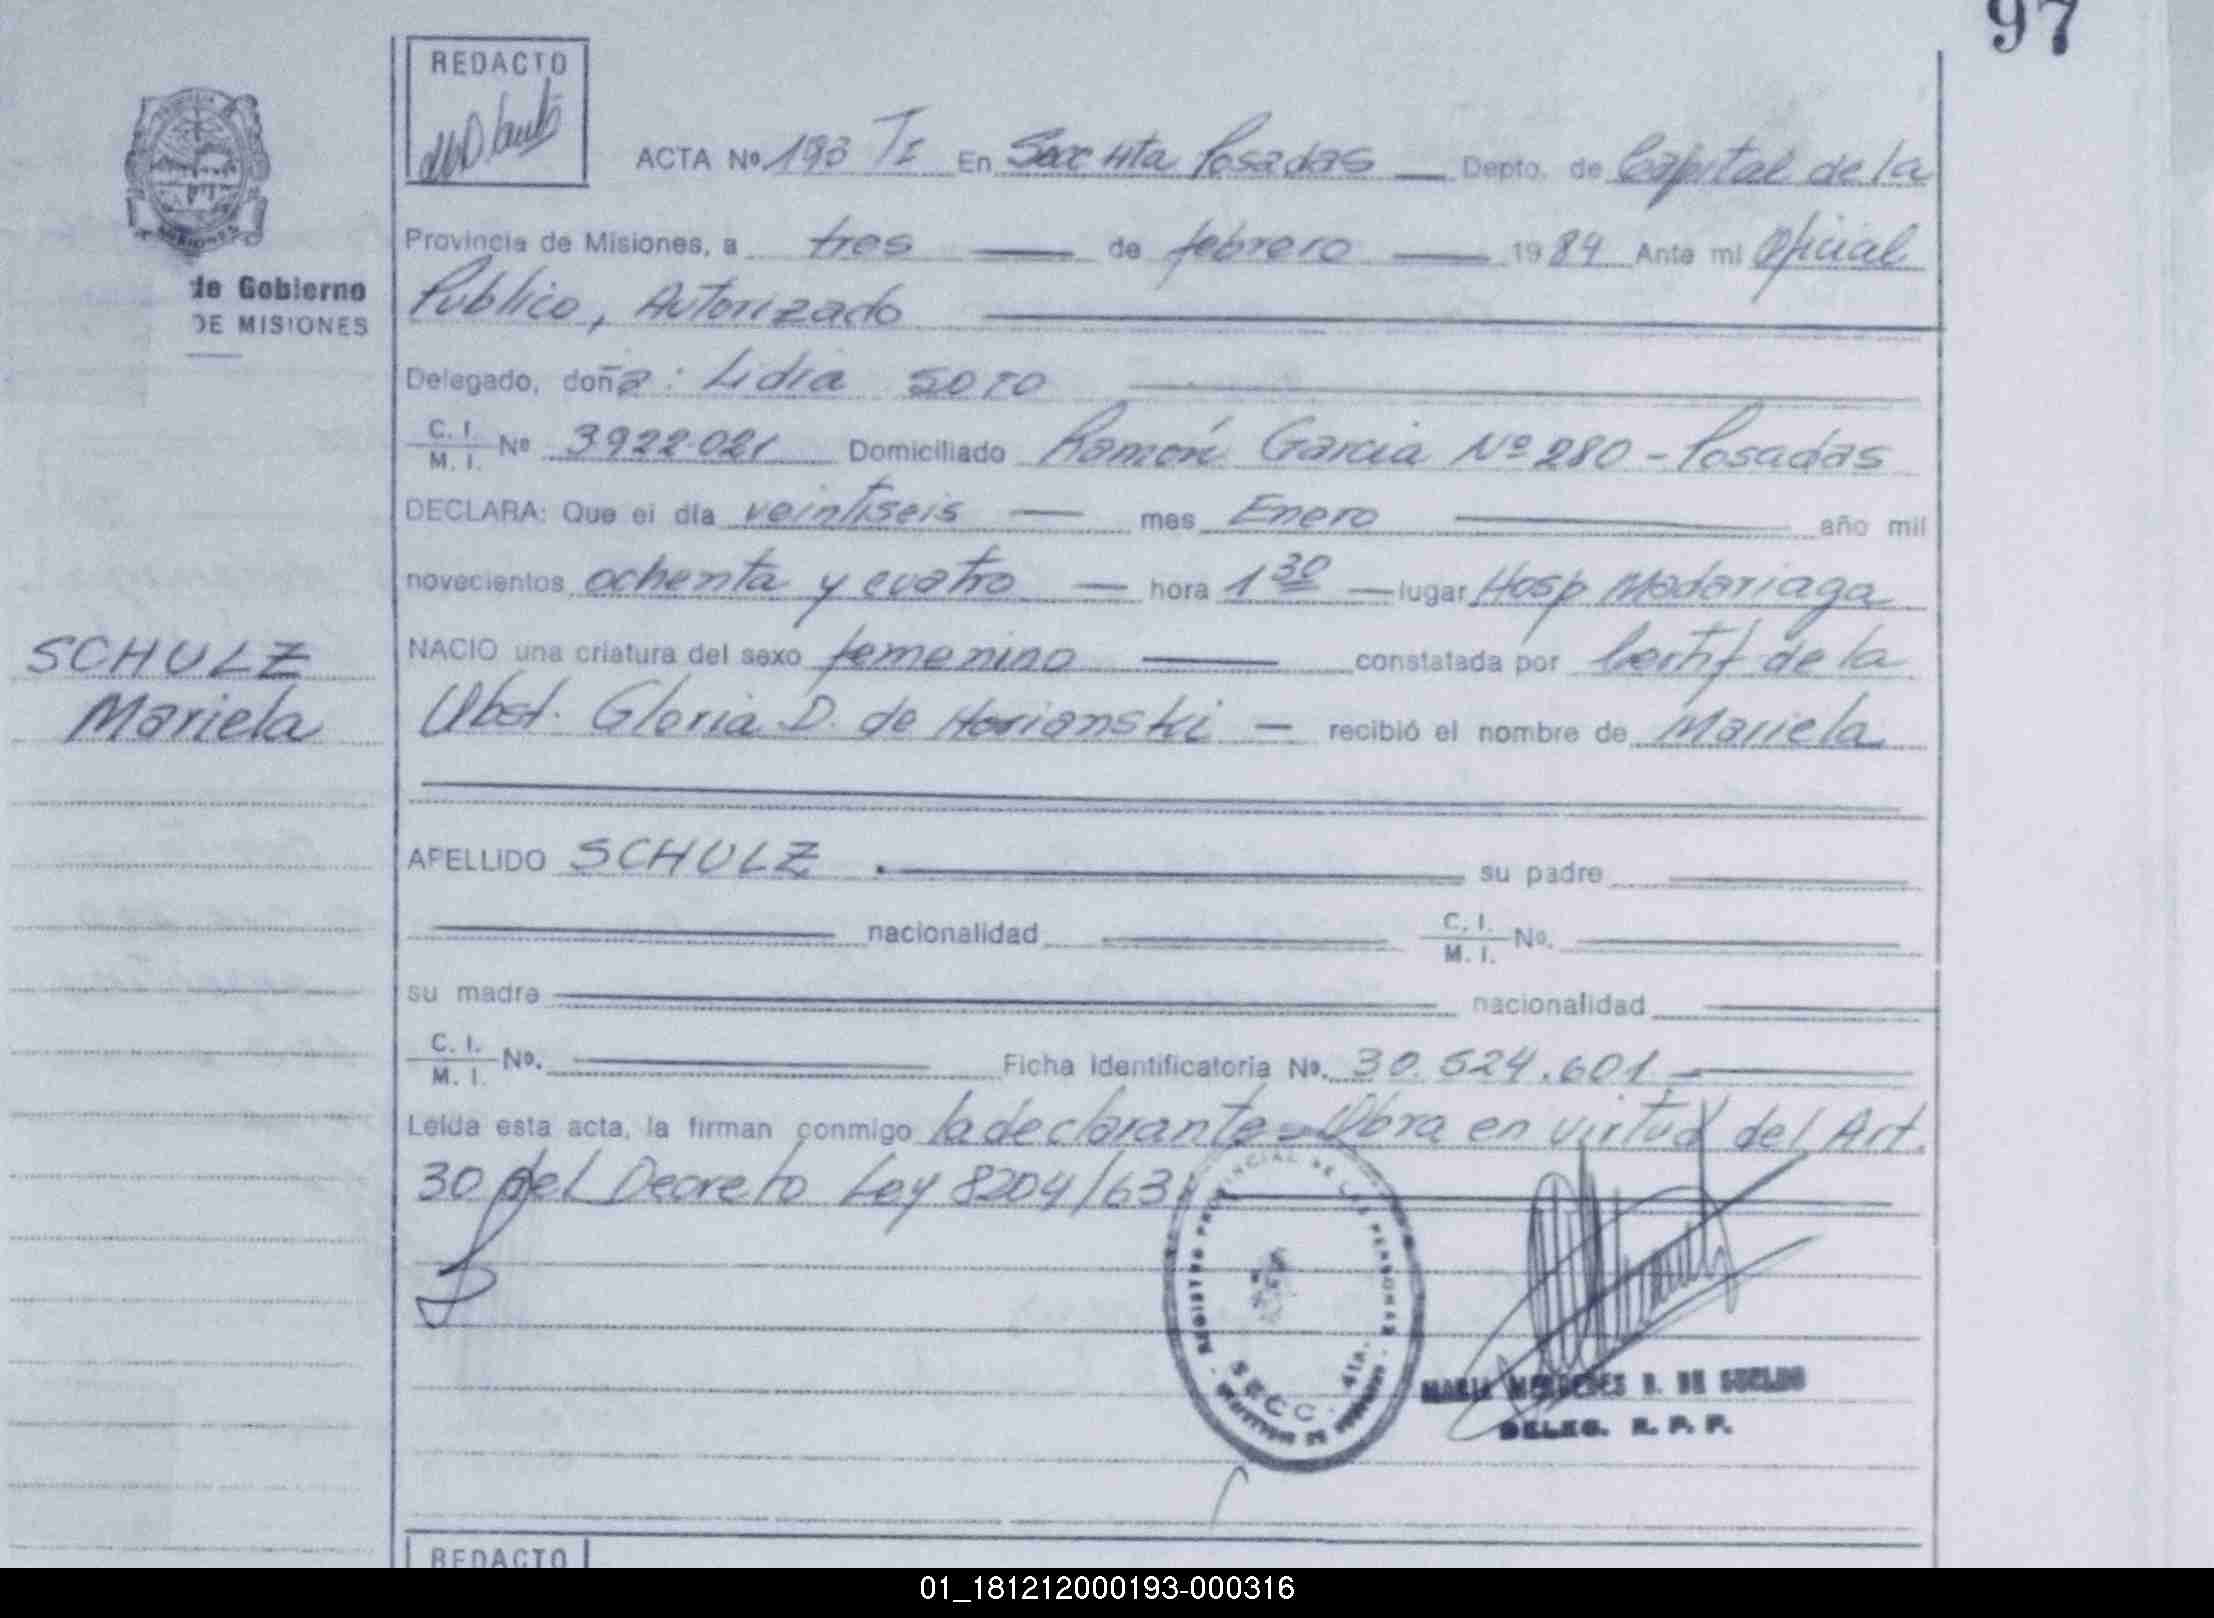 97
REDACTO
ACTA Nº 193 TI En Secc 4ta Posadas — Depto. de Capital de la
Provincia de Misiones, a tres — de febrero — 1984 Ante mi Oficial
de Gobierno
Publico, Autorizado
DE MISIONES
Delegado, doña: Lidia SOTO
C. I.
M. I. Nº 3922.021 Domiciliado Ramón Garcia Nº 280 - Posadas
DECLARA: Que el día veintiseis — mes Enero — año mil
novecientos ochenta y cuatro — hora 1 30 — lugar Hosp Madariaga
SCHULZ
NACIO una criatura del sexo femenino — constatada por Certif de la
Mariela
Obst. Gloria D. de — recibió el nombre de Mariela
APELLIDO SCHULZ . — su padre —
— nacionalidad — C. I.
M. I. Nº. —
su madre — nacionalidad —
C. I.
M. I. Nº. — Ficha Identificatoria Nº. 30.524.601 —
Leída esta acta, la firman conmigo la declarante - Obra en virtud del Art.
30 del Decreto Ley 8204/63
REGISTRO PROVINCIAL DE LAS PERSONAS
SECC. 4ta.
MARIA MERCEDES DE SUELDO
DELEG. R. P. P.
REDACTO
01_181212000193-000316